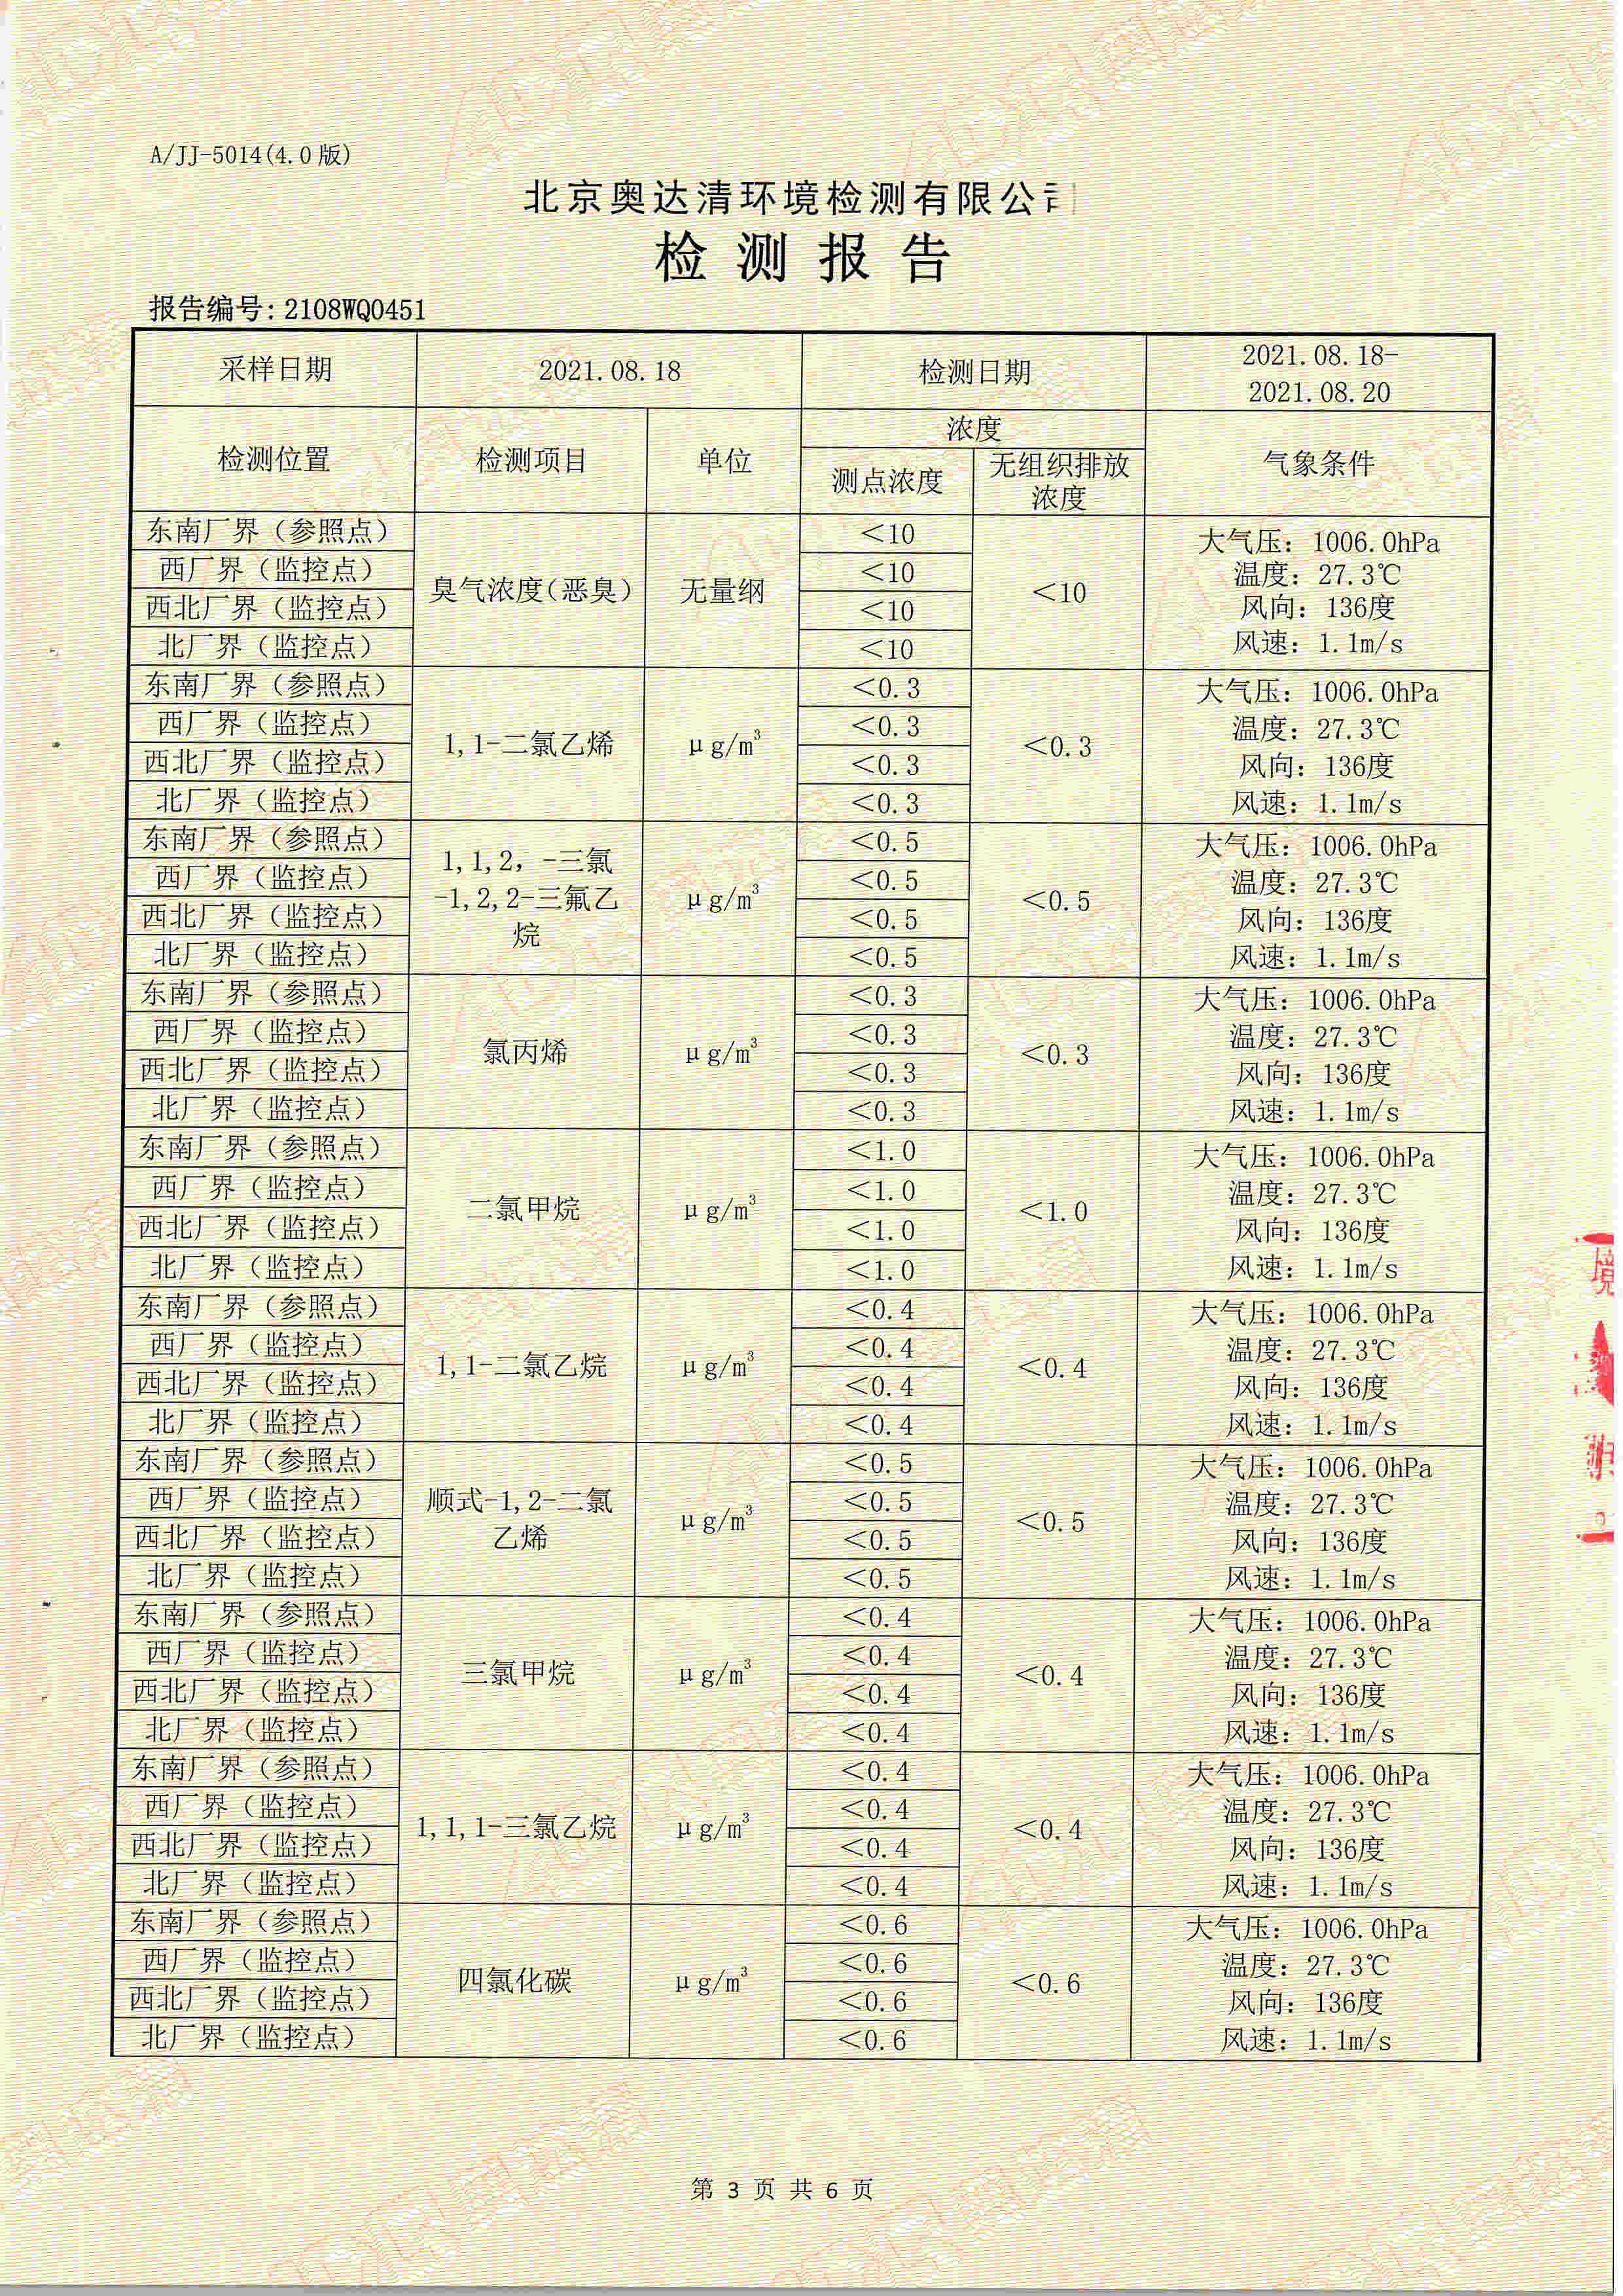 A/JJ-5014(4.0版)
北京奥达清环境检测有限公司
检测报告
报告编号:2108WQ0451
采样日期 2021.08.18 检测日期 2021.08.18-
2021.08.20
检测位置 检测项目 单位 浓度 气象条件
测点浓度 无组织排放
浓度
东南厂界（参照点） <10
西厂界（监控点） <10
西北厂界（监控点） <10
北厂界（监控点） <10
臭气浓度(恶臭) 无量纲 <10
大气压：1006.0hPa
温度：27.3℃
风向：136度
风速：1.1m/s
东南厂界（参照点） <0.3
西厂界（监控点） <0.3
西北厂界（监控点） <0.3
北厂界（监控点） <0.3
1,1-二氯乙烯 μg/m³ <0.3
大气压：1006.0hPa
温度：27.3℃
风向：136度
风速：1.1m/s
东南厂界（参照点） <0.5
西厂界（监控点） <0.5
西北厂界（监控点） <0.5
北厂界（监控点） <0.5
1,1,2，-三氯
-1,2,2-三氟乙
烷
μg/m³ <0.5
大气压：1006.0hPa
温度：27.3℃
风向：136度
风速：1.1m/s
东南厂界（参照点） <0.3
西厂界（监控点） <0.3
西北厂界（监控点） <0.3
北厂界（监控点） <0.3
氯丙烯 μg/m³ <0.3
大气压：1006.0hPa
温度：27.3℃
风向：136度
风速：1.1m/s
东南厂界（参照点） <1.0
西厂界（监控点） <1.0
西北厂界（监控点） <1.0
北厂界（监控点） <1.0
二氯甲烷 μg/m³ <1.0
大气压：1006.0hPa
温度：27.3℃
风向：136度
风速：1.1m/s
东南厂界（参照点） <0.4
西厂界（监控点） <0.4
西北厂界（监控点） <0.4
北厂界（监控点） <0.4
1,1-二氯乙烷 μg/m³ <0.4
大气压：1006.0hPa
温度：27.3℃
风向：136度
风速：1.1m/s
东南厂界（参照点） <0.5
西厂界（监控点） <0.5
西北厂界（监控点） <0.5
北厂界（监控点） <0.5
顺式-1,2-二氯
乙烯
μg/m³ <0.5
大气压：1006.0hPa
温度：27.3℃
风向：136度
风速：1.1m/s
东南厂界（参照点） <0.4
西厂界（监控点） <0.4
西北厂界（监控点） <0.4
北厂界（监控点） <0.4
三氯甲烷 μg/m³ <0.4
大气压：1006.0hPa
温度：27.3℃
风向：136度
风速：1.1m/s
东南厂界（参照点） <0.4
西厂界（监控点） <0.4
西北厂界（监控点） <0.4
北厂界（监控点） <0.4
1,1,1-三氯乙烷 μg/m³ <0.4
大气压：1006.0hPa
温度：27.3℃
风向：136度
风速：1.1m/s
东南厂界（参照点） <0.6
西厂界（监控点） <0.6
西北厂界（监控点） <0.6
北厂界（监控点） <0.6
四氯化碳 μg/m³ <0.6
大气压：1006.0hPa
温度：27.3℃
风向：136度
风速：1.1m/s
境
第 3 页 共 6 页